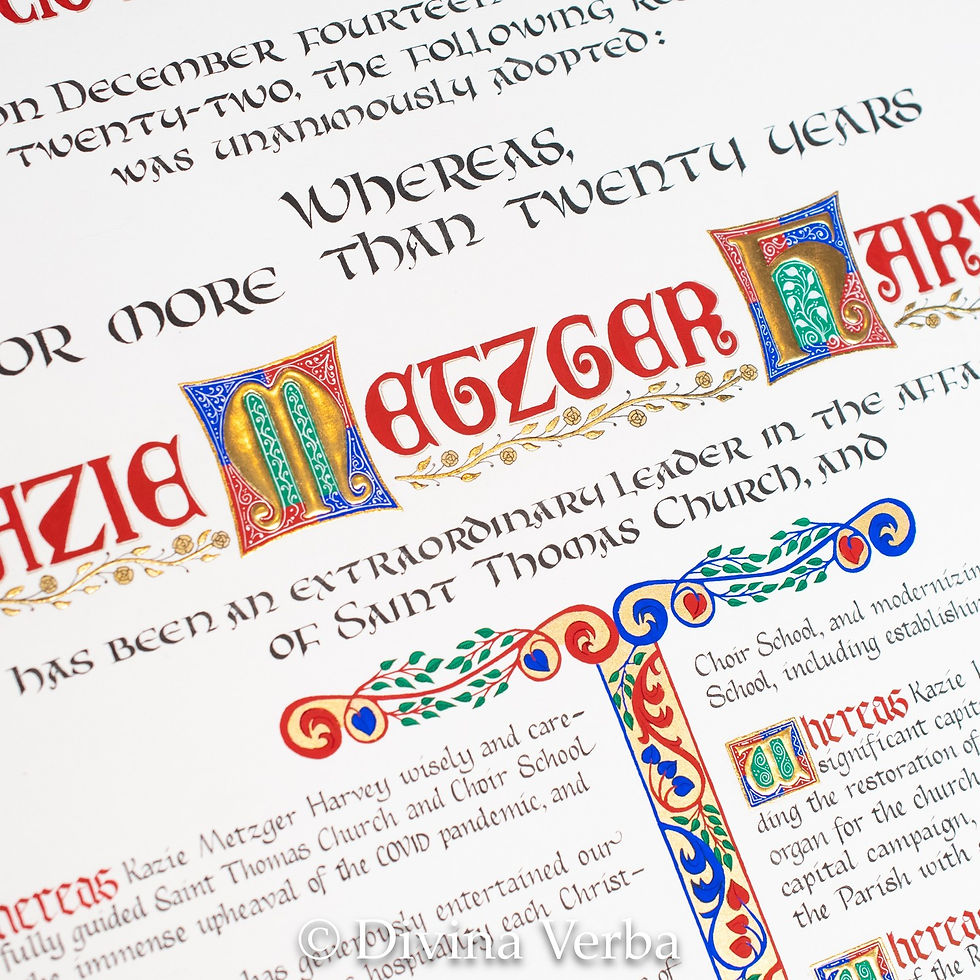 on December fourteen
twenty-two, the following
was unanimously adopted:
Whereas,
or more than twenty years
azie Metzger Harv
has been an extraordinary leader in the affa
of Saint Thomas Church, and
hereas Kazie Metzger Harvey wisely and care-
fully guided Saint Thomas Church and Choir School
he immense upheaval of the COVID pandemic, and
has generously entertained our
hospitality each Christ-
Choir School, and modernizin
School, including establishin
Whereas Kazie
significant capit
ding the restoration of
organ for the church
capital campaign,
the Parish with
hereas
© Divina Verba